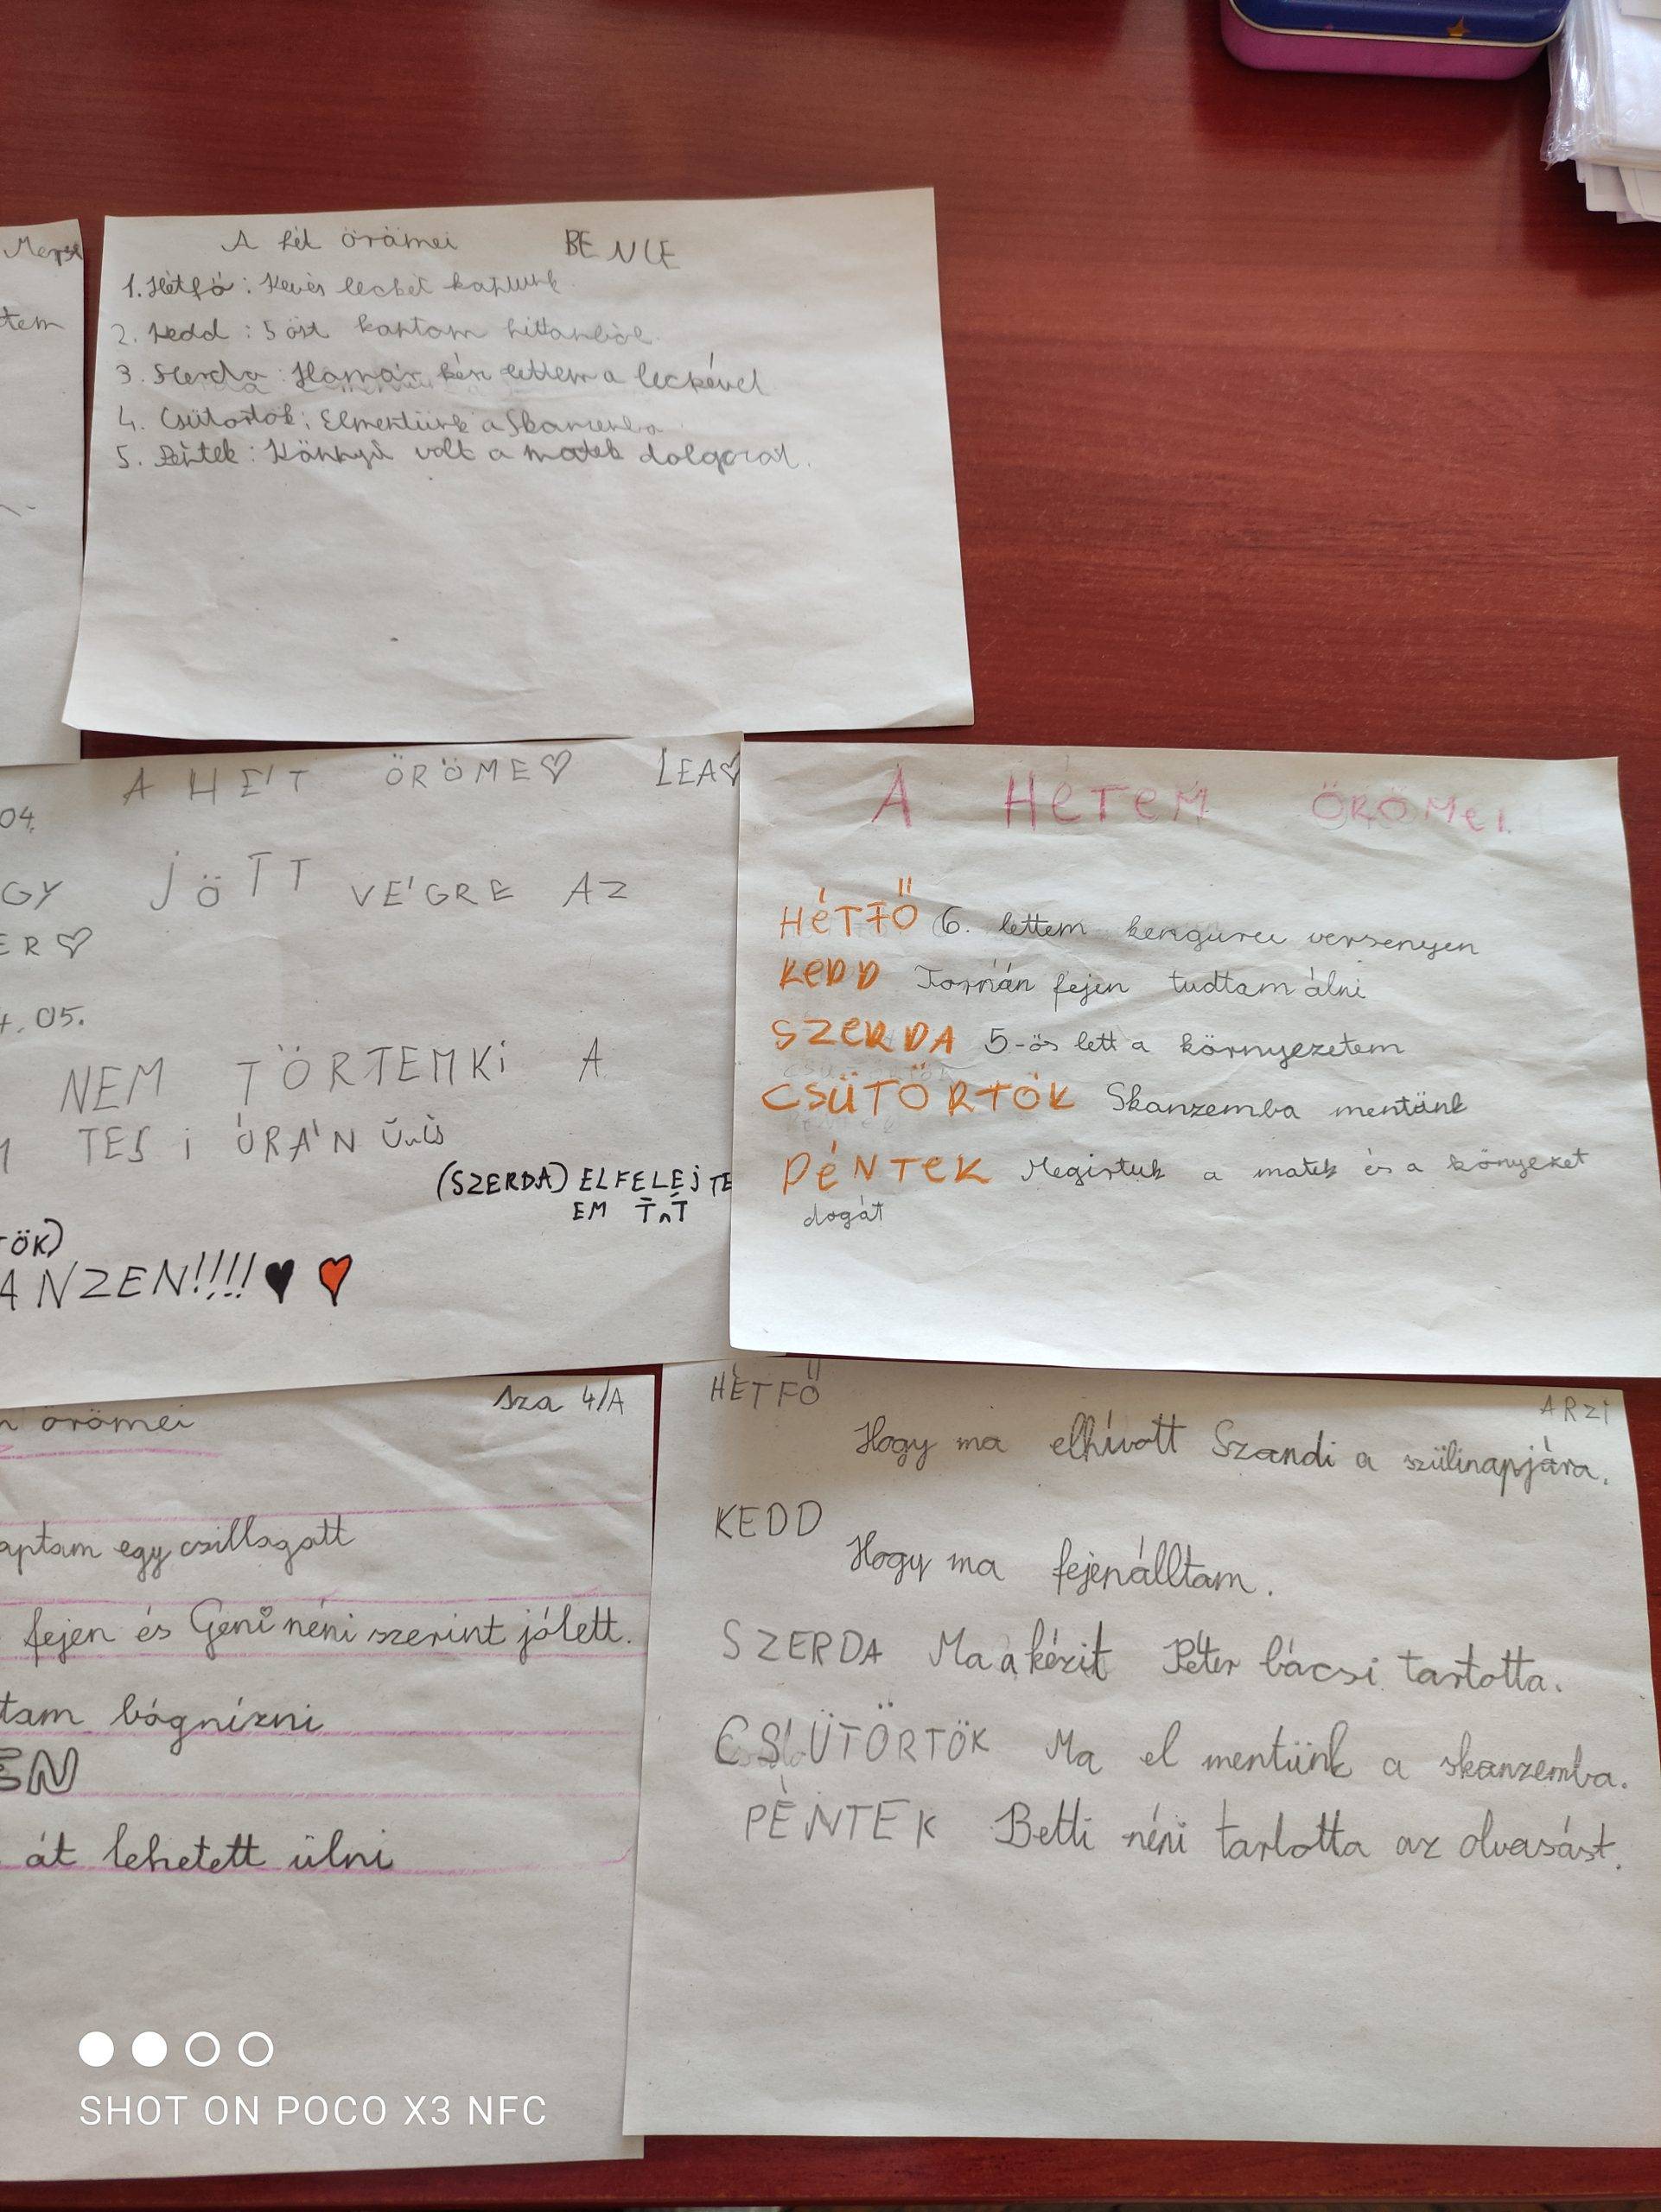 Merse
tem
A hét örömei BENCE
1. Hétfő: Kevés leckét kaptunk
2. Kedd: 5 öst kaptam hittanból.
3. Szerda: Hamar kész lettem a leckével
4. Csütörtök: Elmentünk a Skanzenba
5. Péntek: Könnyű volt a matek dolgozat.
A HÉT ÖRÖME♡ LEA♡
04.
GY JÖTT VÉGRE AZ
ER♡
. 05.
NEM TÖRTEM KI A
TESI ÓRÁN
(SZERDA) ELFELEJTE
EM T^T
TÖK)
ANZEN!!!!♥♥
A HÉTEM ÖRÖMEI
HÉTFŐ 6. lettem kenguru versenyen
KEDD Tornán fejen tudtam álni
SZERDA 5-ös lett a környezetem
CSÜTÖRTÖK Skanzemba mentünk
PÉNTEK Megirtuk a matek és a könyeket
dogát
sza 4/A
örömei
aptam egy csillagott
fejen és Geni néni szerint jólett.
tam bógnizni
EN
át lehetett ülni
HÉTFŐ ARZI
Hogy ma elhívott Szandi a szülinapjára.
KEDD
Hogy ma fejenálltam.
SZERDA Ma a kézit Péter bácsi tartotta.
CSÜTÖRTÖK Ma el mentünk a skanzemba.
PÉNTEK Betti néni tartotta az olvasást.
SHOT ON POCO X3 NFC